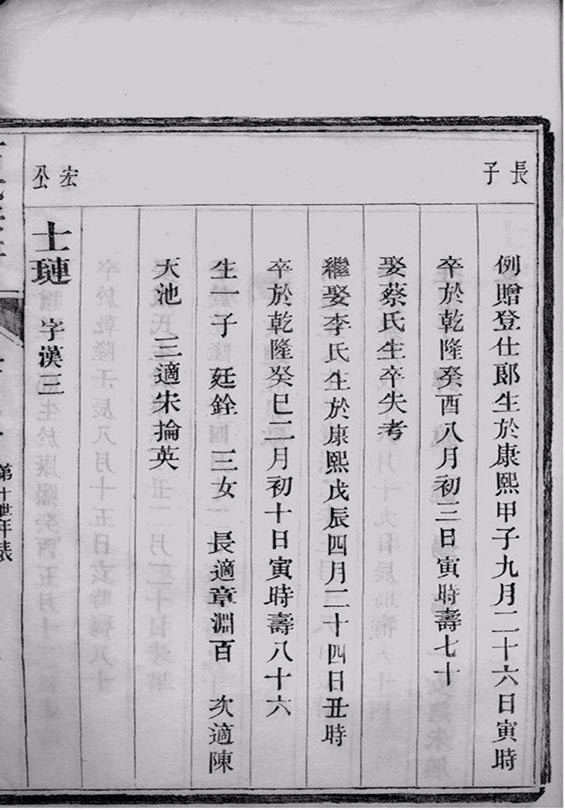 長子
例贈登仕郎生於康熙甲子九月二十六日寅時
卒於乾隆癸酉八月初三日寅時壽七十
娶蔡氏生卒失考
繼娶李氏生於康熙戊辰四月二十四日丑時
卒於乾隆癸巳二月初十日寅時壽八十六
生一子 廷銓 三女 長適章淵百 次適陳
天池 三適朱掄英
宏公
士璉 字漢三
第十世年表